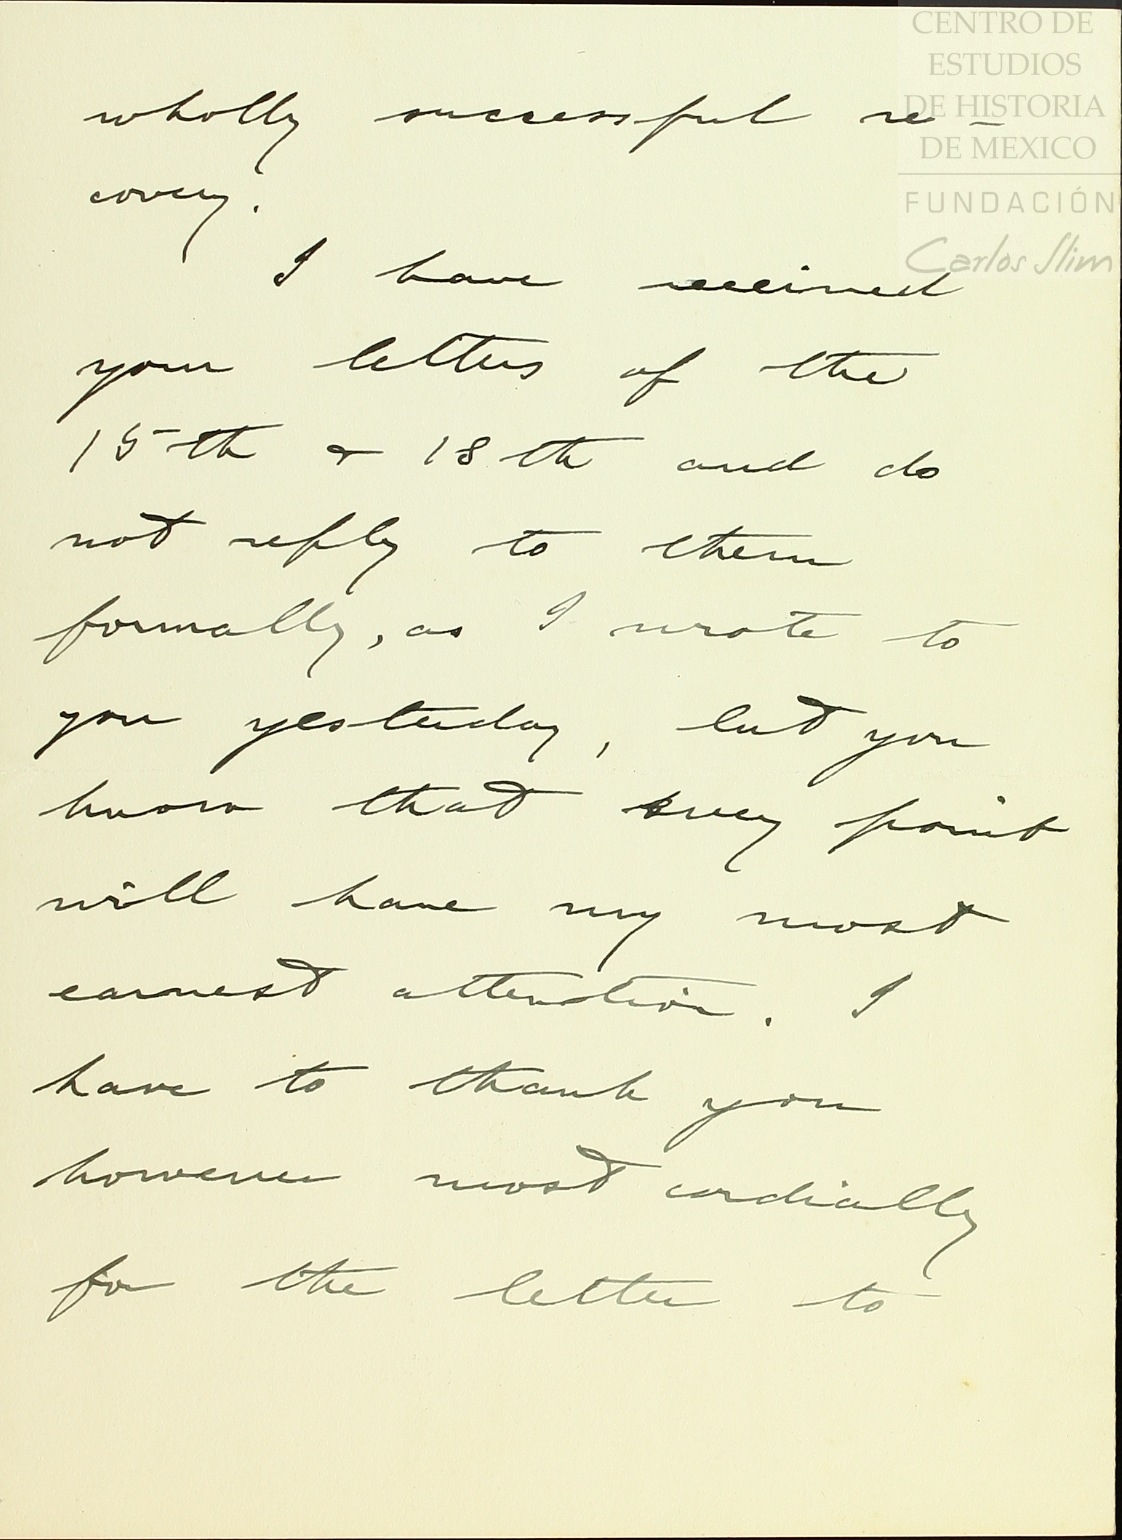 CENTRO DE
ESTUDIOS
DE HISTORIA
DE MEXICO
FUNDACIÓN
Carlos Slim
wholly successful re-
covery.
I have received
your letters of the
15th & 18th and do
not reply to them
formally, as I wrote to
you yesterday, but you
know that every point
will have my most
earnest attention. I
have to thank you
however most cordially
for the letter to